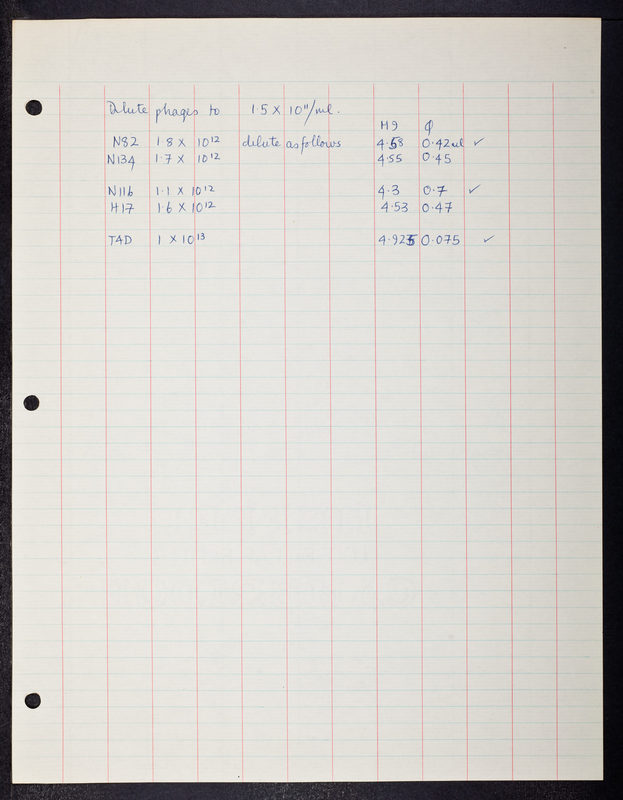 Dilute phages to 1.5 X 10¹¹/ml.
H9 φ
N82 1.8 X 10¹² dilute as follows 4.58 0.42ml ✓
N134 1.7 X 10¹² 4.55 0.45
N116 1.1 X 10¹² 4.3 0.7 ✓
H17 1.6 X 10¹² 4.53 0.47
T4D 1 X 10¹³ 4.925 0.075 ✓